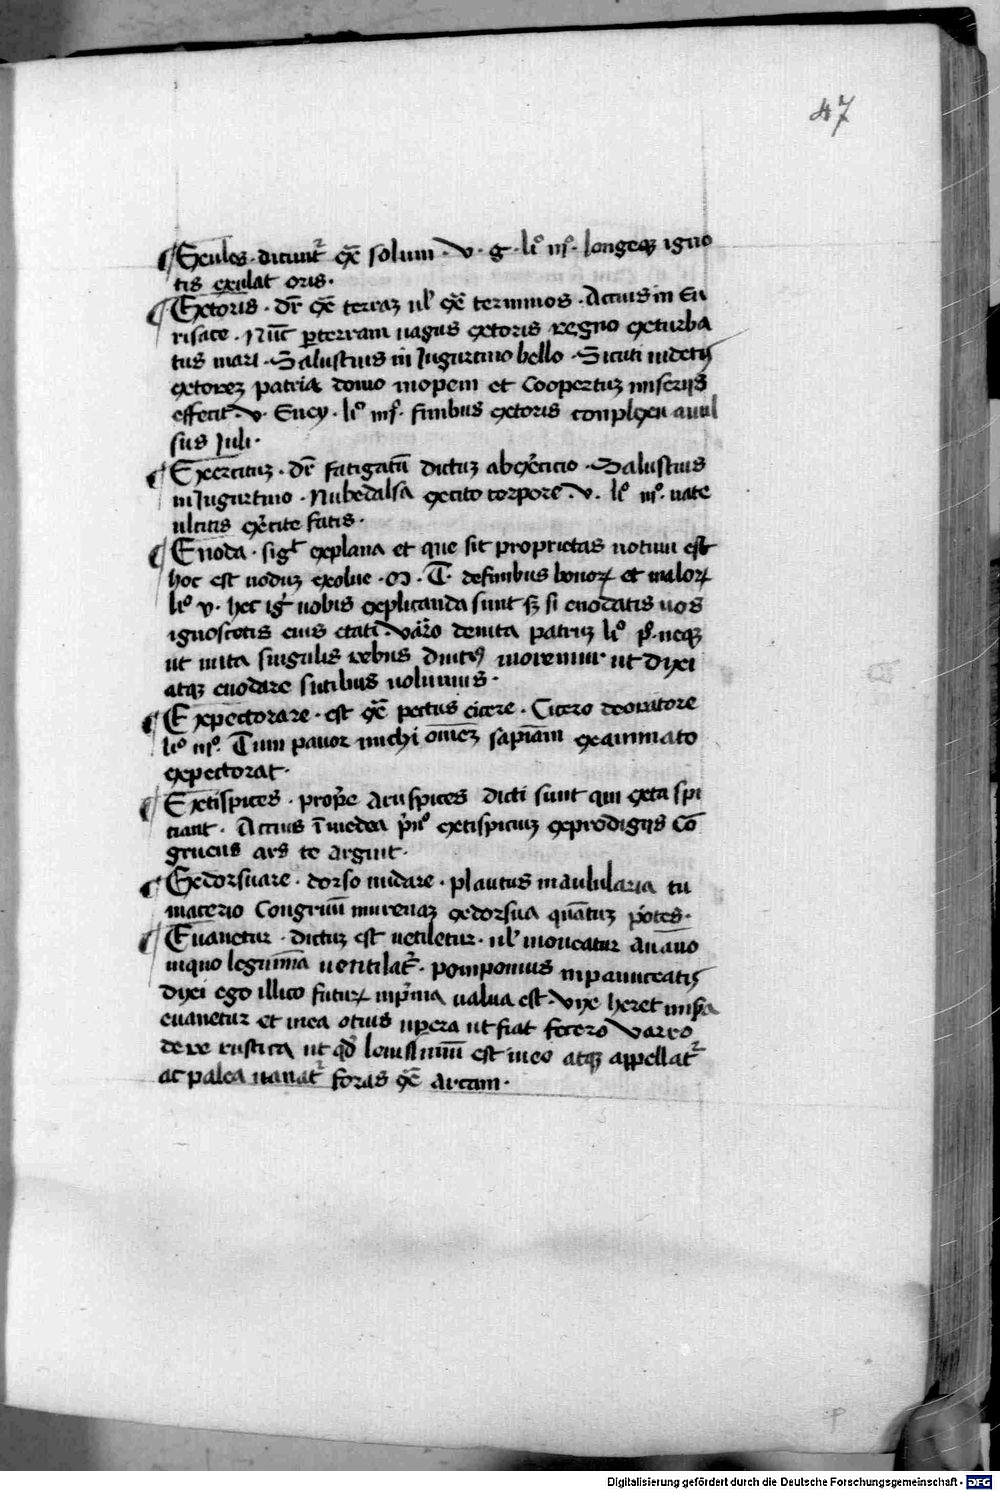 47
Exules · dicunt᷑ ext̄ solum · V · g · liͦ iijͦ · longeqꝫ igno
tis exulat oris ·
Extoris · dr̄ ext̄ terraꝫ ul ext̄ terminos · Actius in Eu
risace · Nūc ꝑ terram uagus extoris regno exturba
tus mari · Salustius in Jugurtino bello · Sicuti uidetis
extoreꝫ patria domo inopem et Coopertuꝫ miserijs
effecit · V · Eney · liͦ iiijͦ · finibus extoris conplexu auul
sus Juli ·
Exercituꝫ · dr̄ fatigatū dictuꝫ ab exercicio · Salustius
in Jugurtino · exercito corpore · V · liͦ iijͦ · uate
exercite fatis ·
Enoda · sigt explana et que sit proprietas notum est
hoc est noduꝫ exolue · M · T · de finibus bonoꝝ et maloꝝ
liͦ v · hec igr̄ nobis explicanda sunt sꝫ si enodatis uos
ignoscetis eius etati · Varro de uita patruꝫ liͦ pͦ · neqꝫ
ut in ita singulis rebus moremur ut dixi
atqꝫ enodare uolumus ·
Expectorare · est ext̄ pectus eicere · Cicero de oratore
liͦ iijͦ · Tum pauor michi omneꝫ sapiam̄ exanimato
expectorat ·
Extispices · propr̄e aruspices dicti sunt qui exta spi
tiant · Actius ī medea extispicuꝫ ex prodigijs Cō
gruens ars te arguit ·
Exdorsuare · dorso nudare · plautus in aulularia tu
macerio Congriuū murenaꝫ exdorsua quātuꝫ potes ·
Euanetur · dictuꝫ est uetiletur · ul moueatur a uano
in quo legumina uentilat᷑ · pomponius in panniceatis
Dixi ego illico futuꝝ in prima ualua est · Vixe heret misera
euanetur et mea otius opera ut fiat fecero Varro
de re rustica ut qd̄ leuissimū est in eo atqꝫ appellat᷑
ac palea uanat᷑ foras ext̄ arcam ·
P
Digitalisierung gefördert durch die Deutsche Forschungsgemeinschaft - DFG